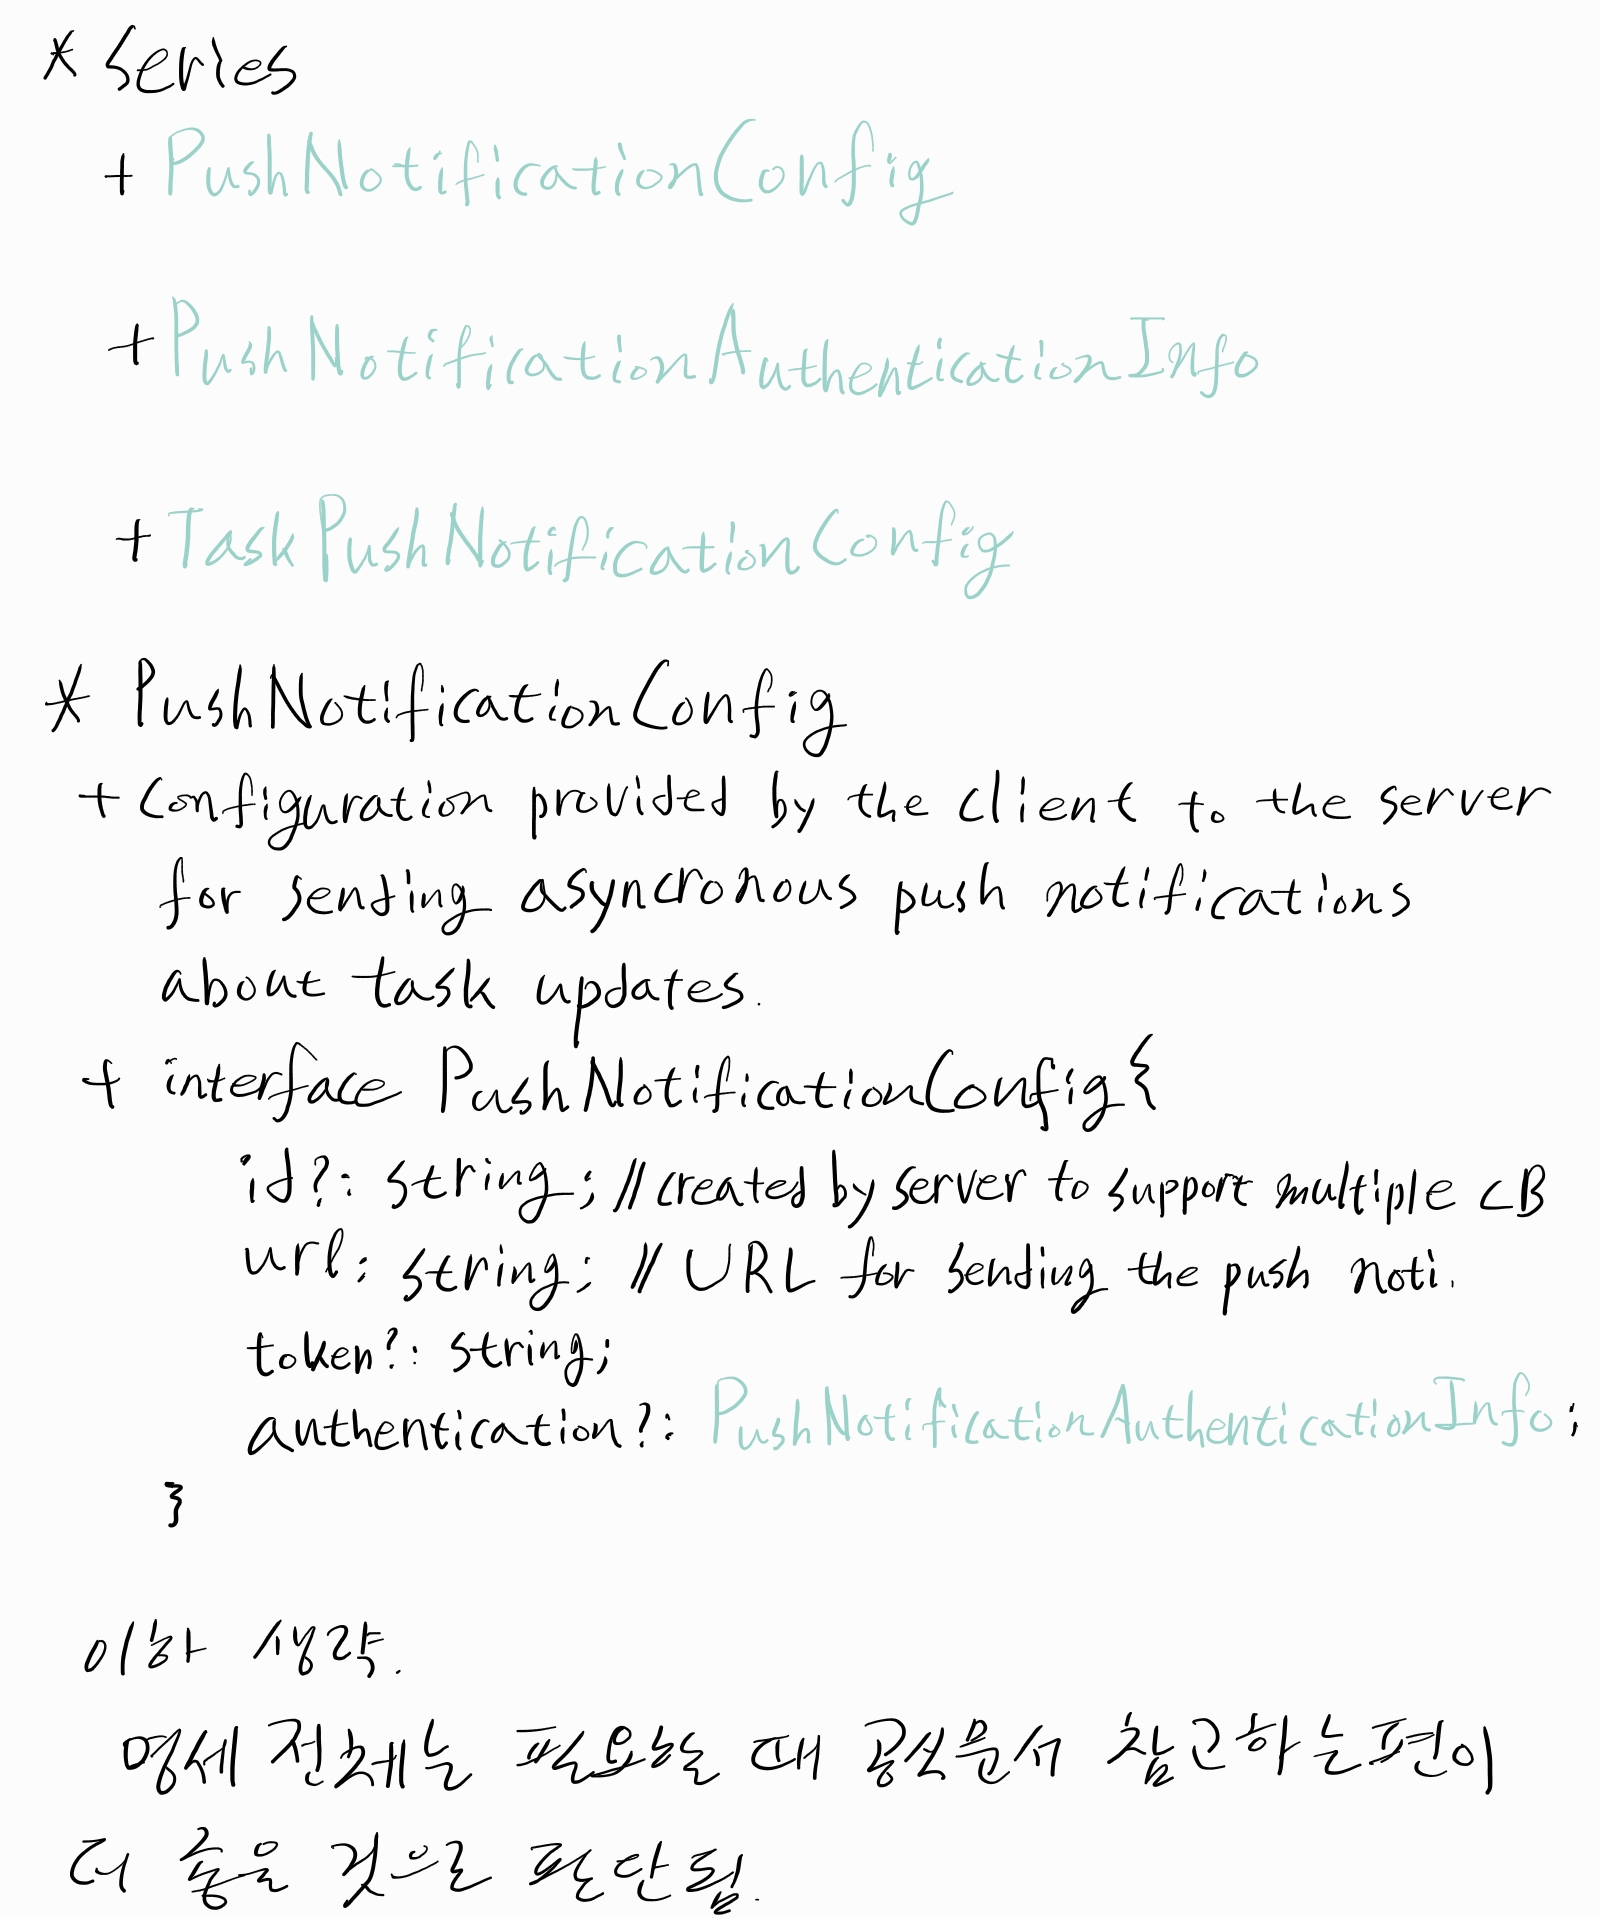 * Series
+ PushNotificationConfig
+ PushNotificationAuthenticationInfo
+ TaskPushNotificationConfig
* PushNotificationConfig
+ Configuration provided by the client to the server
for sending asyncronous push notifications
about task updates.
+ interface PushNotificationConfig{
id?: string; // created by server to support multiple CB
url: string; // URL for sending the push noti.
token?: string;
authentication?: PushNotificationAuthenticationInfo;
}
이하 생략.
명세 전체는 필요할 때 공식문서 참고하는편이
더 좋을 것으로 판단됨.